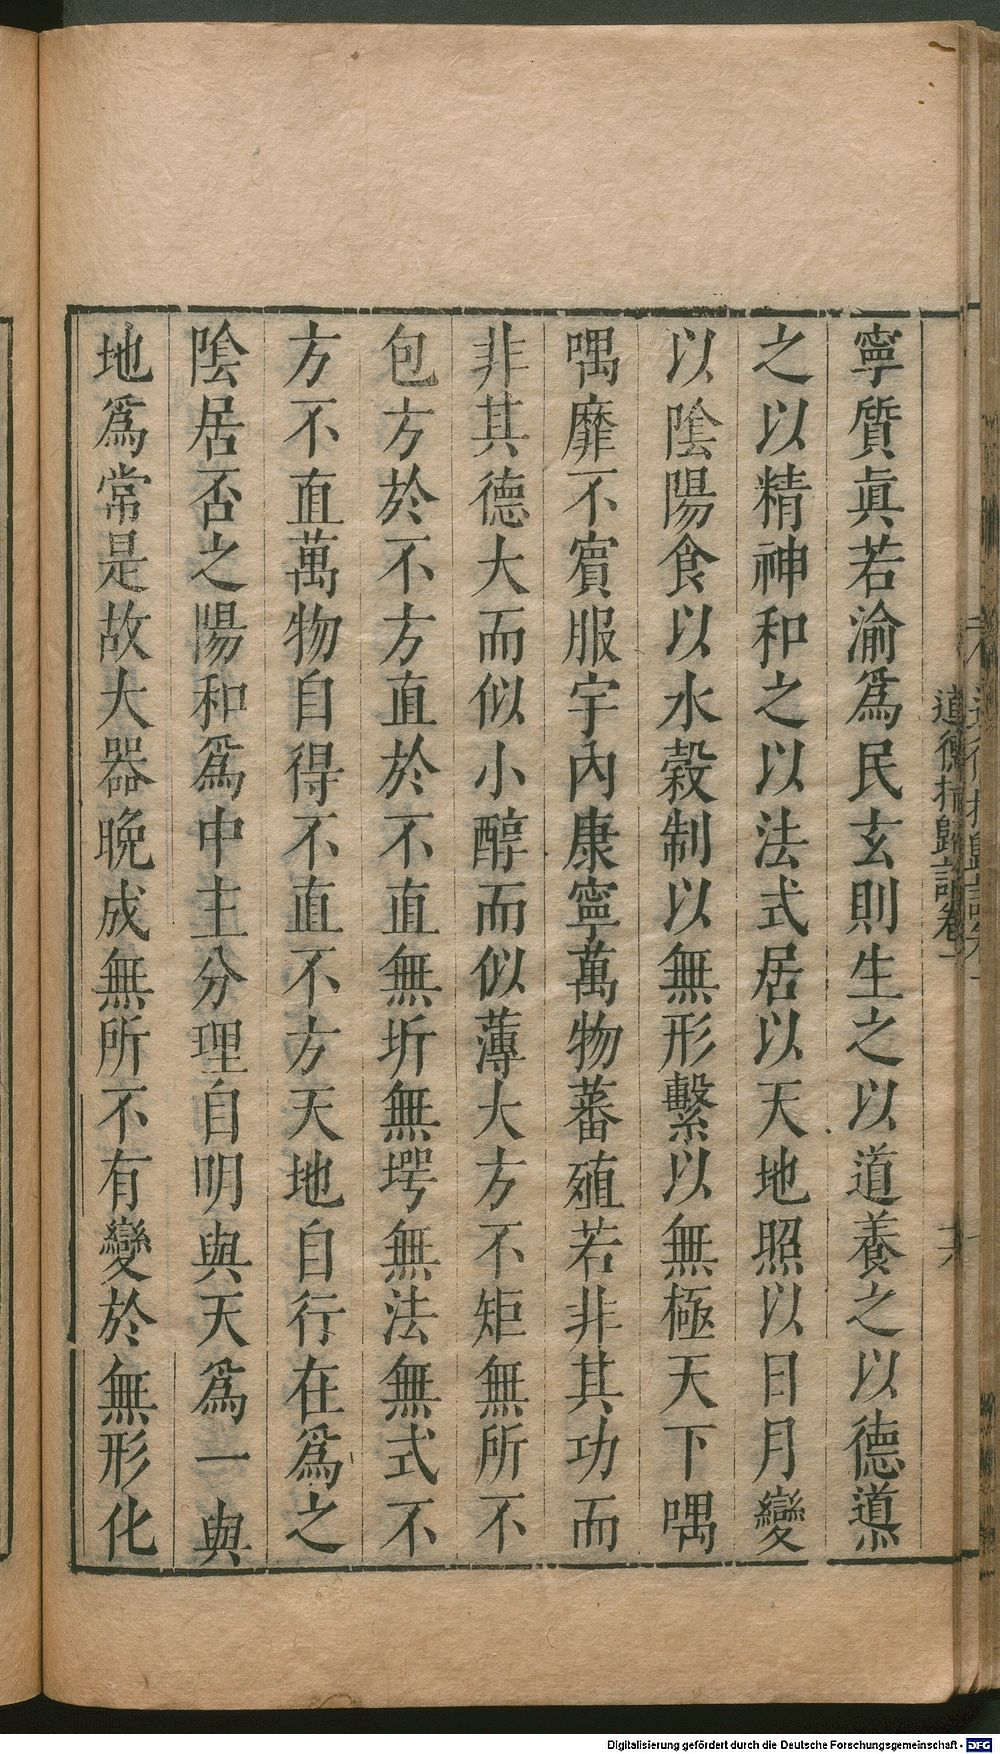 寧質眞若渝爲民玄則生之以道養之以德導
之以精神和之以法式居以天地照以日月變
以陰陽食以水穀制以無形繫以無極天下喁
喁靡不賓服宇內康寧萬物蕃殖若非其功而
非其德大而似小醇而似薄大方不矩無所不
包方於不方直於不直無圻無堮無法無式不
方不直萬物自得不直不方天地自行在爲之
陰居否之陽和爲中主分理自明與天爲一與
地爲常是故大器晚成無所不有變於無形化
道德指歸論卷一
Digitalisierung gefördert durch die Deutsche Forschungsgemeinschaft - DFG